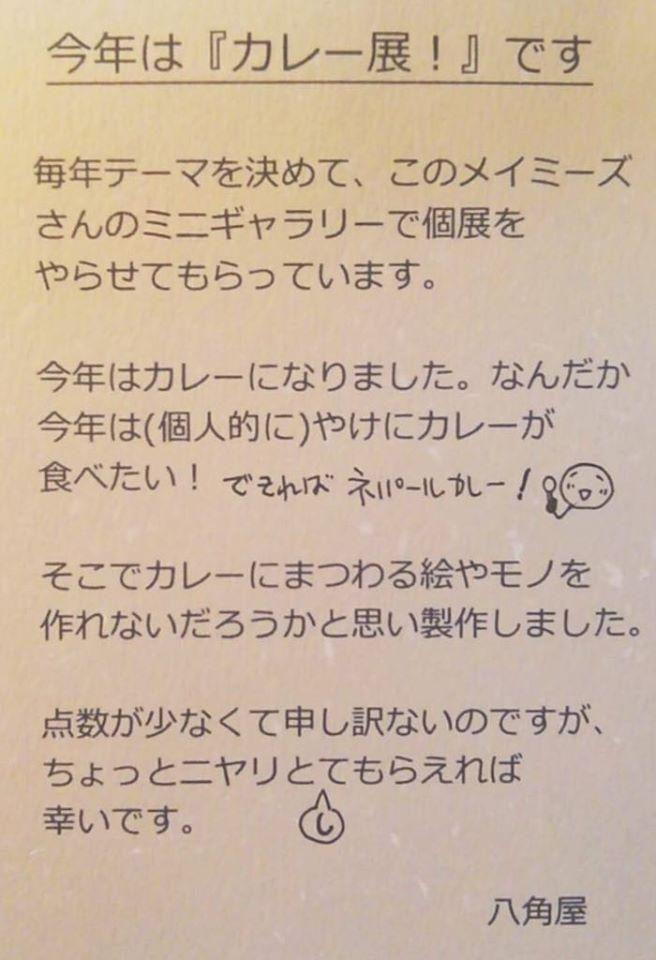 今年は『カレー展！』です
毎年テーマを決めて、このメイミーズ
さんのミニギャラリーで個展を
やらせてもらっています。
今年はカレーになりました。なんだか
今年は(個人的に)やけにカレーが
食べたい！ できればネパールカレー！
そこでカレーにまつわる絵やモノを
作れないだろうかと思い製作しました。
点数が少なくて申し訳ないのですが、
ちょっとニヤリとてもらえれば
し
幸いです。
八角屋